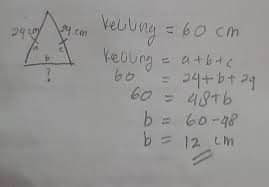 Kelling = 60 cm
24 cm
24 cm
a
c
b
?
Kelling = a+b+c
60 = 24+b+24
60 = 48+b
b = 60-48
b = 12 cm